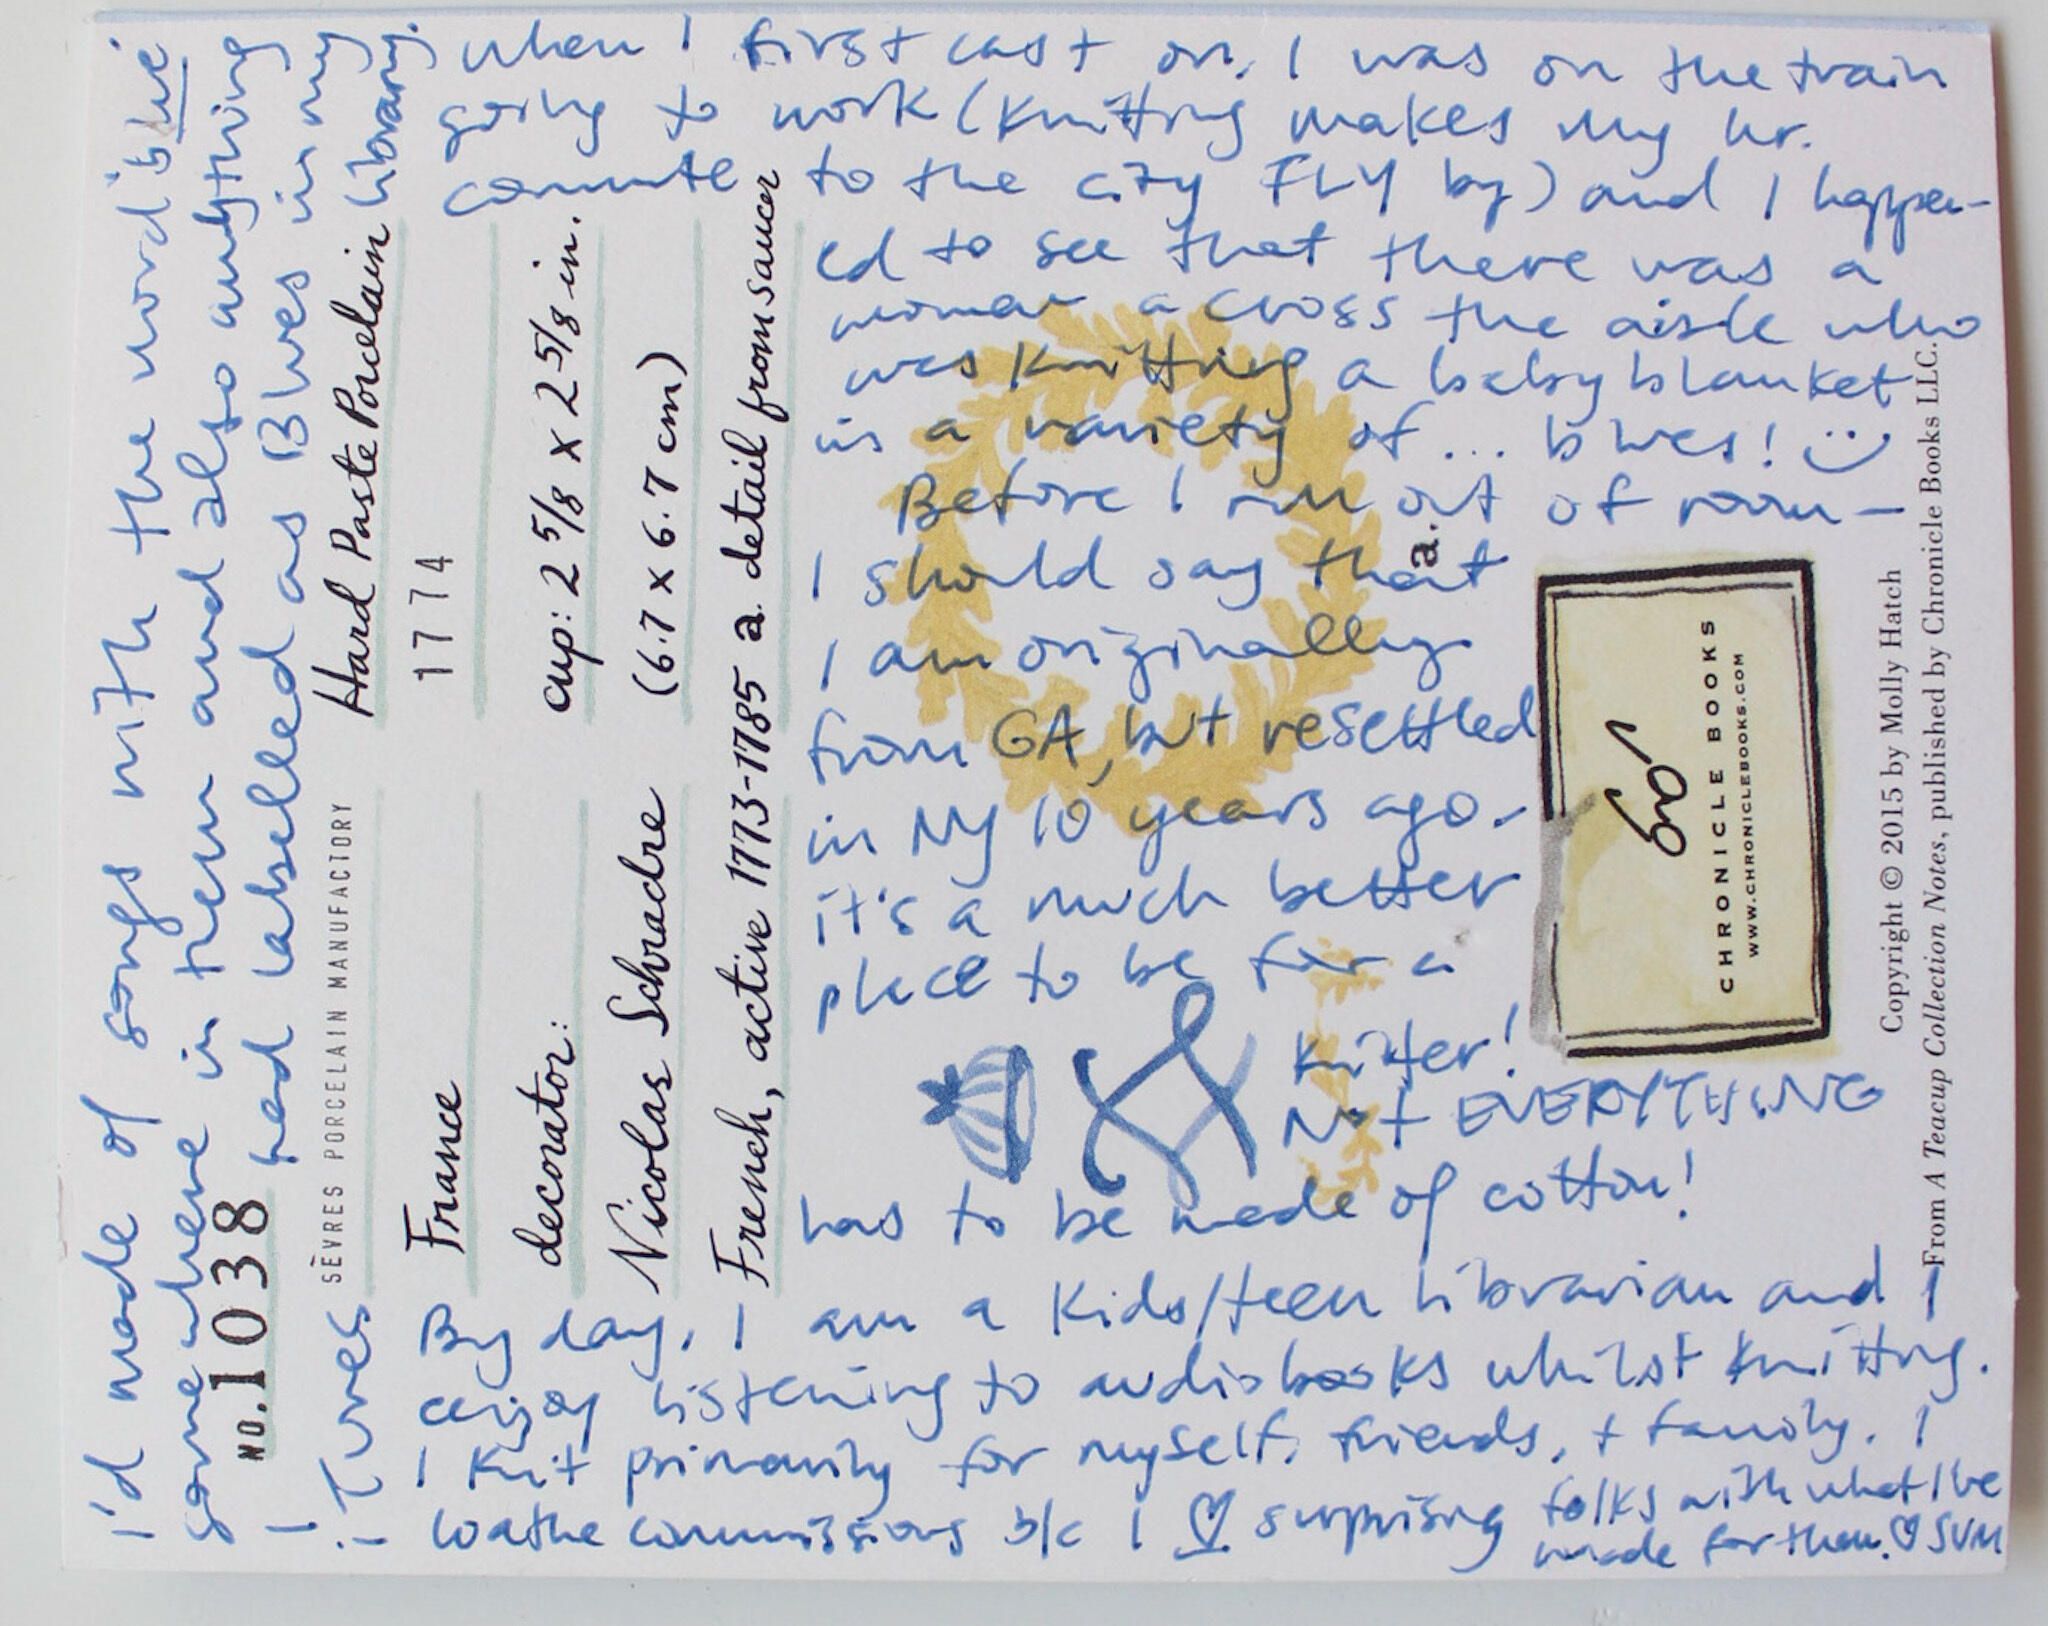 I'd made of songs with the word blue
somewhere in them and also anything
I had labelled as Blues in my
iTunes library.
when I first cast on. I was on the train
going to work (Knitting makes my hr.
commute to the city FLY by) and I happen-
ed to see that there was a
woman across the aisle who
was knitting a baby blanket
in a variety of... blues! :)
Before I run out of room —
I should say that
I am originally
from GA, but resettled
in NY 10 years ago.
it's a much better
place to be for a
knitter!
Not EVERYTHING
has to be made of cotton!
By day, I am a Kids/teen librarian and I
enjoy listening to audiobooks whilst knitting.
I knit primarily for myself, friends, + family. I
loathe commissions b/c I ♡ surprising folks with what I've
made for them. ♡ SVM
NO. 1038
SÈVRES PORCELAIN MANUFACTORY
Hard Paste Porcelain
France
1774
decorator:
cup: 2 5/8 x 2 5/8 in.
Nicolas Schradre
(6.7 x 6.7 cm)
French, active 1773-1785
a. detail from saucer
a.
CHRONICLE BOOKS
WWW.CHRONICLEBOOKS.COM
Copyright © 2015 by Molly Hatch
From A Teacup Collection Notes, published by Chronicle Books LLC.